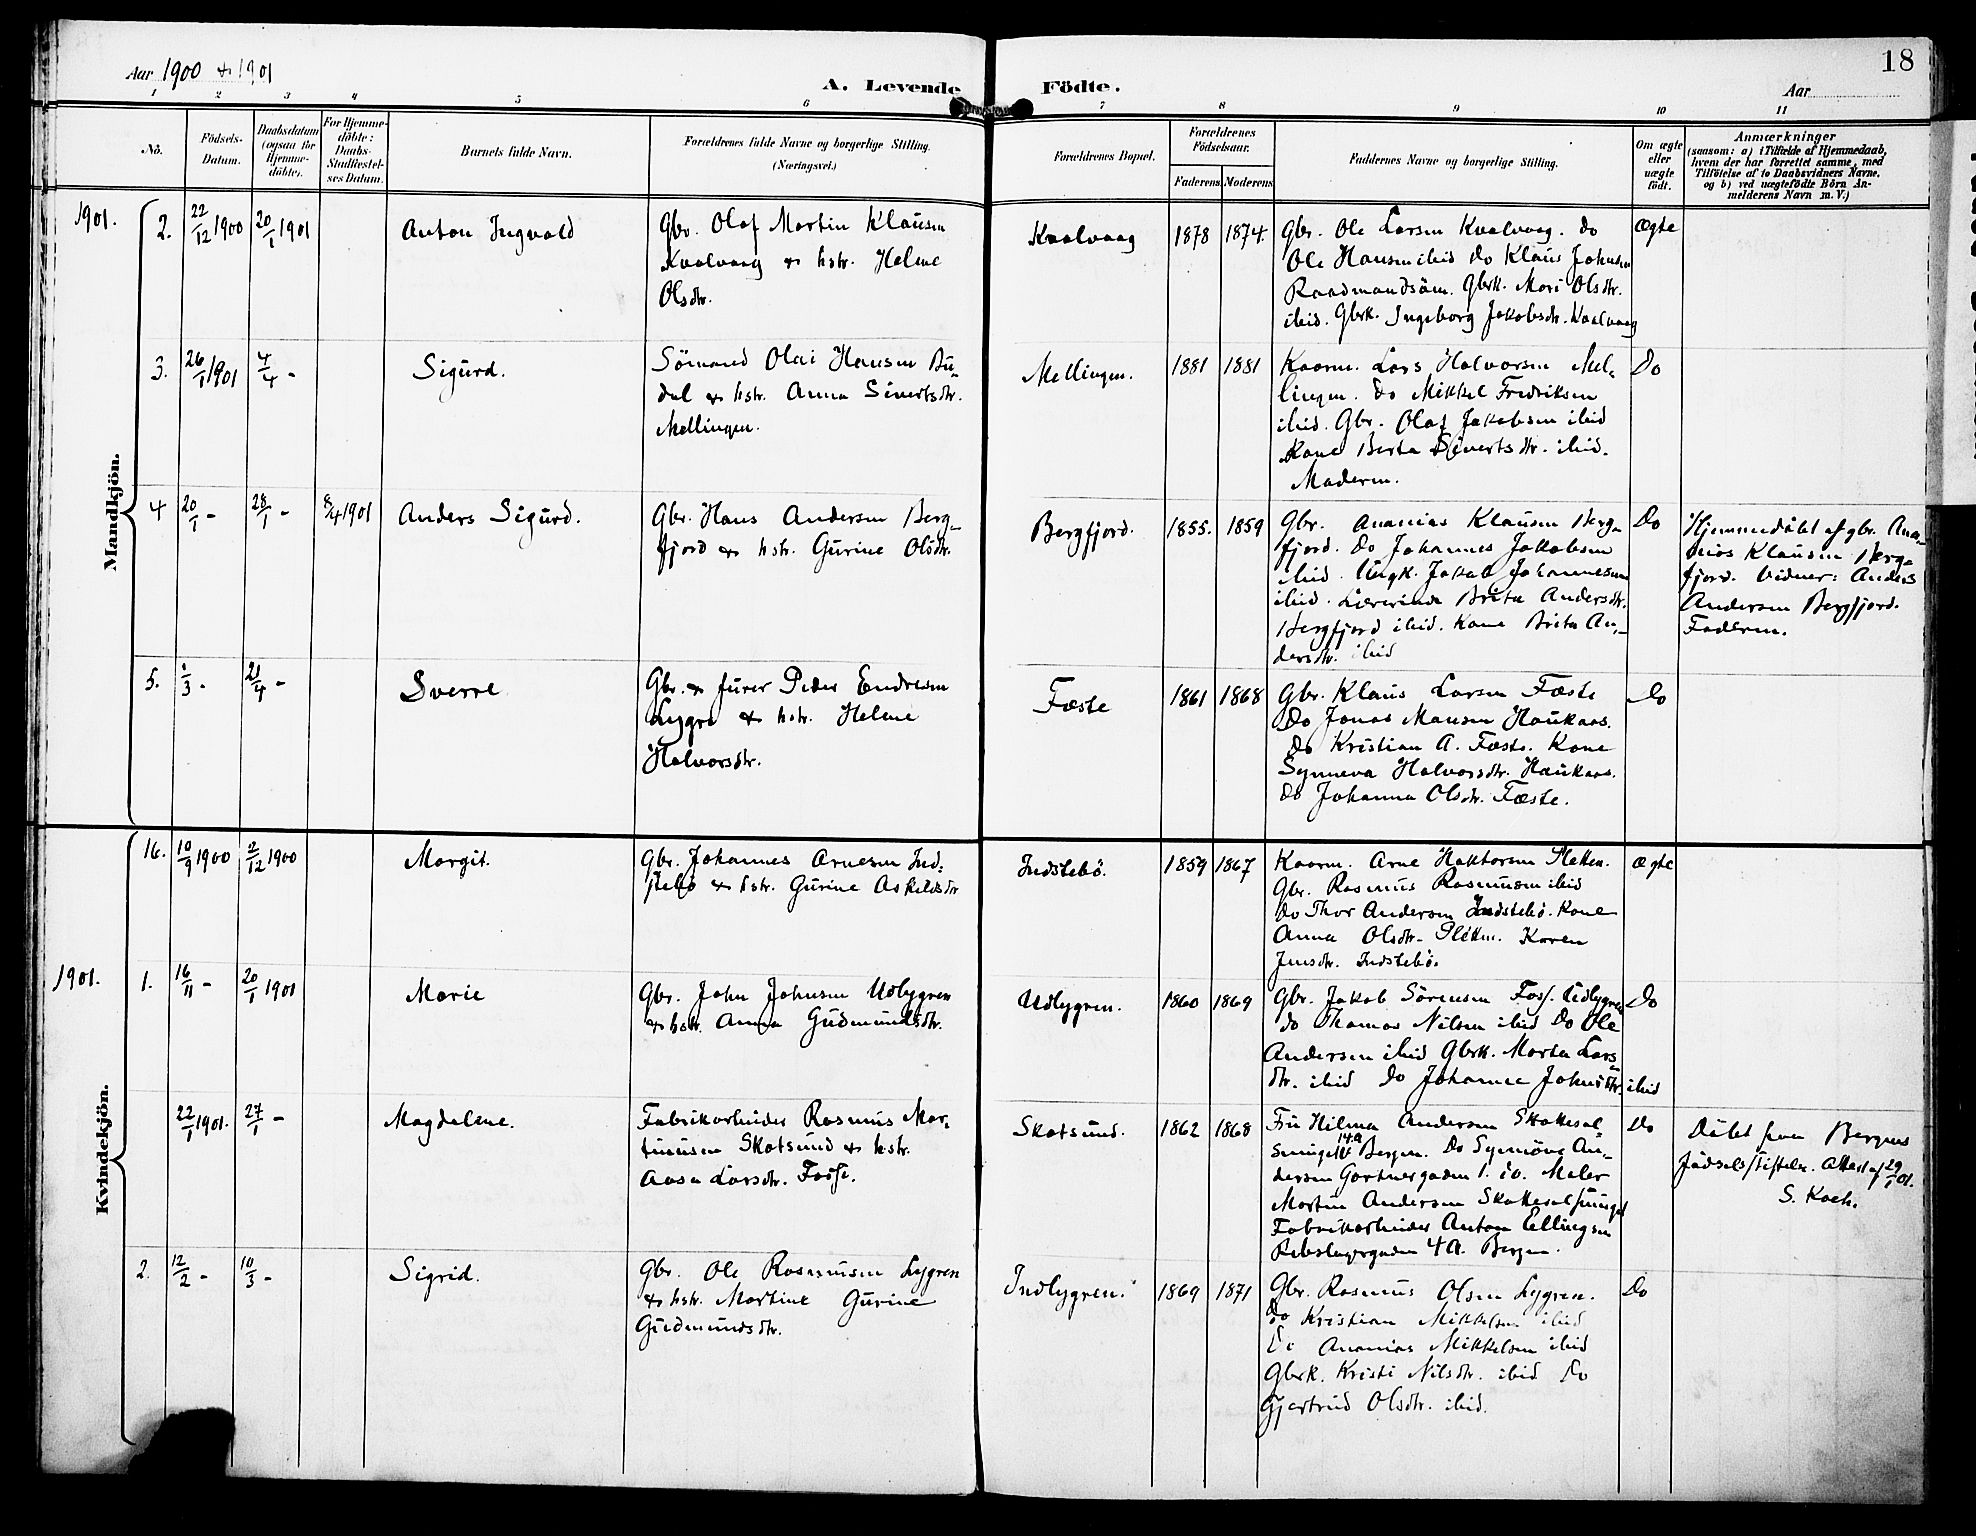 Aar 1900 & 1901
A. Levende Födte.
Aar
18
1 2 3 4 5 6 7 8 9 10 11
No.
Födsels-
Datum.
Daabsdatum
(ogsaa for
Hjemme-
döbte).
For Hjemme-
döbte:
Daabs-
Stadfæstel-
ses Datum.
Barnets fulde Navn.
Forældrenes fulde Navne og borgerlige Stilling.
(Næringsvei.)
Forældrenes Bopæl.
Forældrenes
Födselsaar.
Faderens.
Moderens
Faddernes Navne og borgerlige Stilling.
Om ægte
eller
uægte
födt.
Anmærkninger
(saasom: a) i Tilfælde af Hjemmedaab,
hvem der har forrettet samme, med
Tilföielse af to Daabsvidners Navne,
og b) ved uægtefödte Börn An-
melderens Navn m. V.)
Mandkjön.
1901.
2.
22/12 1900
20/1 1901
Anton Ingvald
Gbr. Olaf Martin Klausen
Kvalvaag & hstr. Helene
Olsdtr.
Kvalvaag
1878
1874.
Gbr. Ole Larsen Kvalvaag. do
Ole Hansen ibid do Klaus Johnsen
Raadmandsöm. Gbrk. Mari Olsdtr.
ibid. Gbrk. Ingeborg Jakobsdtr. Kvalvaag
Ægte
3.
26/1 1901
4/4 -
Sigurd.
Sömand Olai Hansen Bu-
dal & hstr. Anna Sivertsdtr.
Mellingen.
Mellingen.
1881
1881
Kaarm. Lars Halvorsen Mel-
lingen. do Mikkel Fredriksen
ibid. Gbr. Olaf Jakobsen ibid
Kone Berta Sivertsdtr. ibid.
Moderen.
Do
4
20/1 -
28/1 -
8/4 1901
Anders Sigurd.
Gbr. Hans Andersen Berg-
fjord & hstr. Gurine Olsdtr.
Bergfjord.
1855.
1859
Gbr. Ananias Klausen Berg-
fjord. do Johannes Jakobsen
ibid. Ungk. Jakob Johannesen
ibid. Lærerinde Brita Andersdtr.
Bergfjord ibid. Kone Brita An-
dersdtr. ibid
Do
Hjemmedöbt af gbr. Ana-
nias Klausen Berg-
fjord. Vidner: Anders
Andersen Bergfjord.
Faderen.
5.
/3 -
21/4 -
Sverre
Gbr. & furer Peder Endresen
Lygre & hstr. Helene
Halvorsdtr.
Fæste
1861
1868
Gbr. Klaus Larsen Fæste
Do Jonas Mansen Haukaas.
do Kristian A. Fæste. Kone
Synneva Halvorsdtr. Haukaas.
do Johanna Olsdtr. Fæste.
Do
Kvindekjön.
16.
10/9 1900
2/12 1900
Margit.
Gbr. Johannes Arnesen Ind-
stebö & hstr. Gurine Askildsdtr
Indstebö.
1859
1867
Kaarm. Arne Haktorsen Sletten.
Gbr. Rasmus Rasmussen ibid
do Thor Andersen Indstebö. Kone
Anna Olsdtr. Sletten. Karen
Jensdtr. Indstebö.
Ægte
1901.
1.
16/11 -
20/1 1901
Marie
Gbr. John Johnsen Udlygren
& hstr. Anna Gudmundsdtr.
Udlygren.
1860
1869
Gbr. Jakob Sörensen Foss. Udlygren
do Thomas Nilsen ibid Do Ole
Andersen ibid Gbrk. Marta Lars-
dtr. ibid do Johanne Johnsdtr. ibid
Do
22/1 1901.
27/1 -
Magdelene.
Fabrikarbeider Rasmus Mar-
tinusen Skotsund & hstr.
Aasa Larsdtr. Fosse.
Skotsund.
1862
1868
Fru Hilma Andersen Skottesal-
smuget 14a Bergen. Do Synnöve An-
dersen Gartnergaden 1. do. Maler
Martin Andersen Skottesalsmuget
Fabrikarbeider Anton Ellingsen
Rebslagergaden 4A. Bergen.
Do
Döbt paa Bergens
Födselsstiftelse. Attest af 29/1 01.
S. Koch.
2.
12/2 -
10/3 -
Sigrid.
Gbr. Ole Rasmussen Lygren
& hstr. Martine Gurine
Gudmundsdtr.
Indlygren.
1869
1871
Gbr. Rasmus Olsen Lygren.
Do Kristian Mikkelsen ibid
Do Ananias Mikkelsen ibid
Gbrk. Kristi Nilsdtr. ibid Do
Gjertrud Olsdtr. ibid.
Do